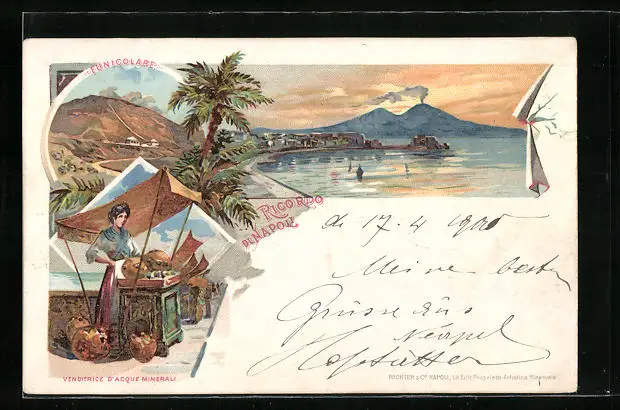 FUNICOLARE
RICORDO
DI NAPOLI
di 17. 4 1900
Meine besten
Grüsse aus
Neapel
VENDITRICE D'ACQUE MINERALI
RICHTER & Cº NAPOLI,